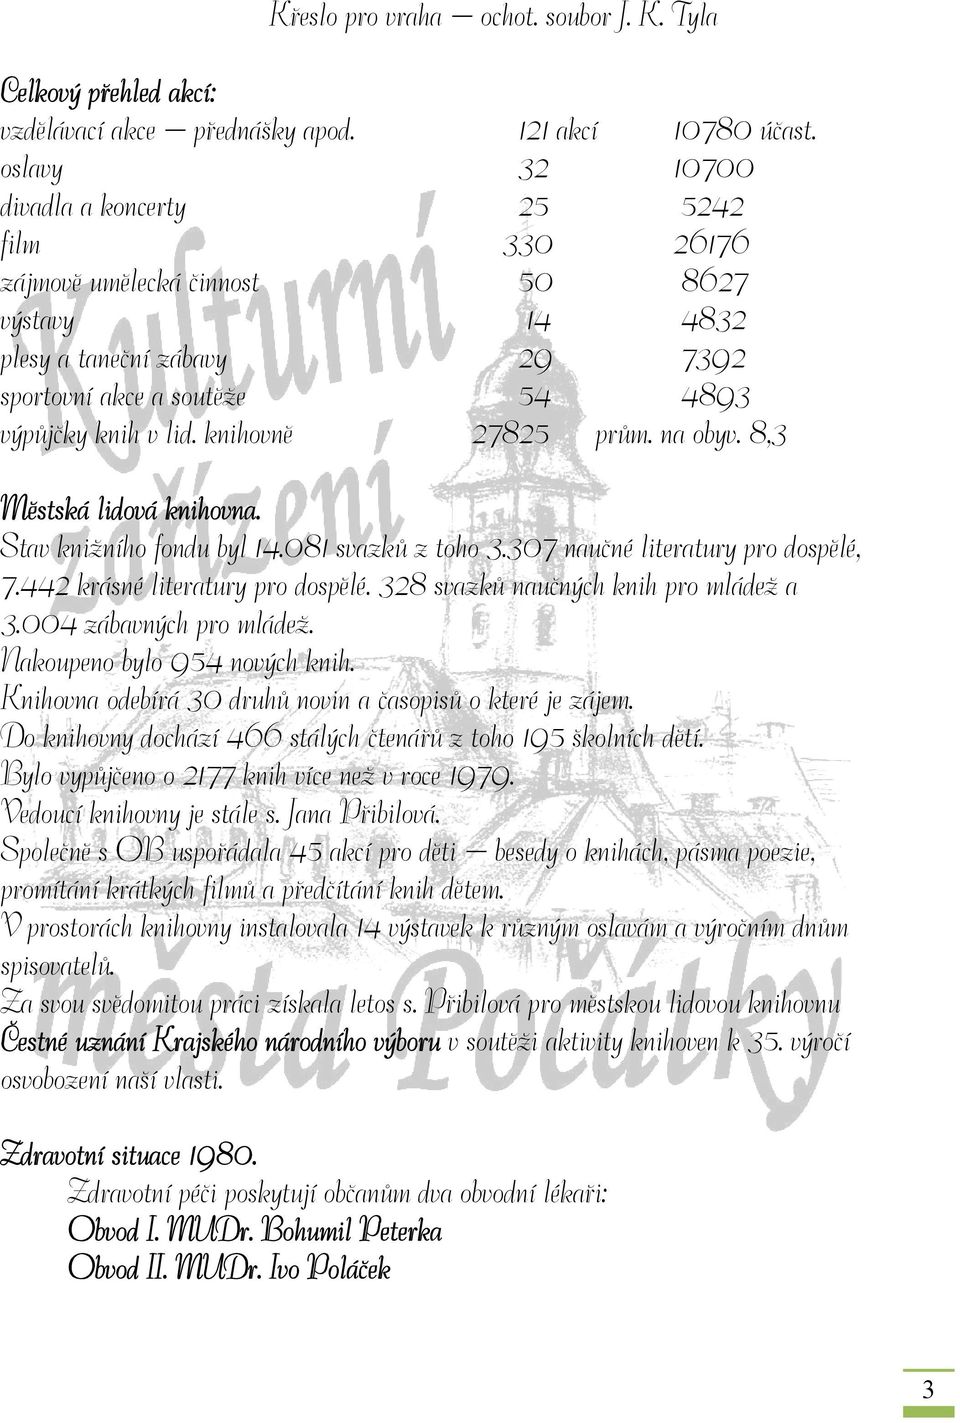 Křeslo pro vraha – ochot. soubor J. K. Tyla
Celkový přehled akcí:
vzdělávací akce – přednášky apod. 121 akcí 10780 účast.
oslavy 32 10700
divadla a koncerty 25 5242
film 330 26176
zájmově umělecká činnost 50 8627
výstavy 14 4832
plesy a taneční zábavy 29 7392
sportovní akce a soutěže 54 4893
výpůjčky knih v lid. knihovně 27825 prům. na obyv. 8,3
Městská lidová knihovna.
Stav knižního fondu byl 14.081 svazků z toho 3.307 naučné literatury pro dospělé,
7.442 krásné literatury pro dospělé. 328 svazků naučných knih pro mládež a
3.004 zábavných pro mládež.
Nakoupeno bylo 954 nových knih.
Knihovna odebírá 30 druhů novin a časopisů o které je zájem.
Do knihovny dochází 466 stálých čtenářů z toho 195 školních dětí.
Bylo vypůjčeno o 2177 knih více než v roce 1979.
Vedoucí knihovny je stále s. Jana Přibilová.
Společně s OB uspořádala 45 akcí pro děti – besedy o knihách, pásma poezie,
promítání krátkých filmů a předčítání knih dětem.
V prostorách knihovny instalovala 14 výstavek k různým oslavám a výročním dnům
spisovatelů.
Za svou svědomitou práci získala letos s. Přibilová pro městskou lidovou knihovnu
Čestné uznání Krajského národního výboru v soutěži aktivity knihoven k 35. výročí
osvobození naší vlasti.
Zdravotní situace 1980.
Zdravotní péči poskytují občanům dva obvodní lékaři:
Obvod I. MUDr. Bohumil Peterka
Obvod II. MUDr. Ivo Poláček
Kulturní
zařízení
města Počátky
3